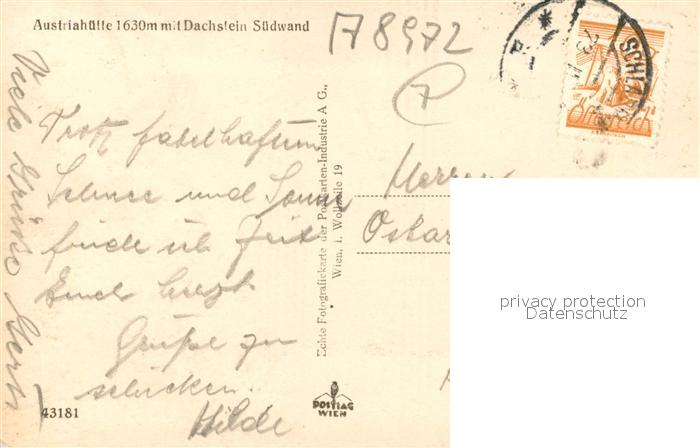 Austriahütte 1630m mit Dachstein Südwand
A8972
Trotz fabelhaftem
Schnee und Sonne
finde ich Zeit
Euch herzl.
Grüße zu
schicken.
Hilde
Viele Grüße
Echte Fotografiekarte der Postkarten-Industrie A G.,
Wien, I. Wollzeile 19
Herrn
Oskar
SCHLA
privacy protection
Datenschutz
43181
POSTIAG
WIEN